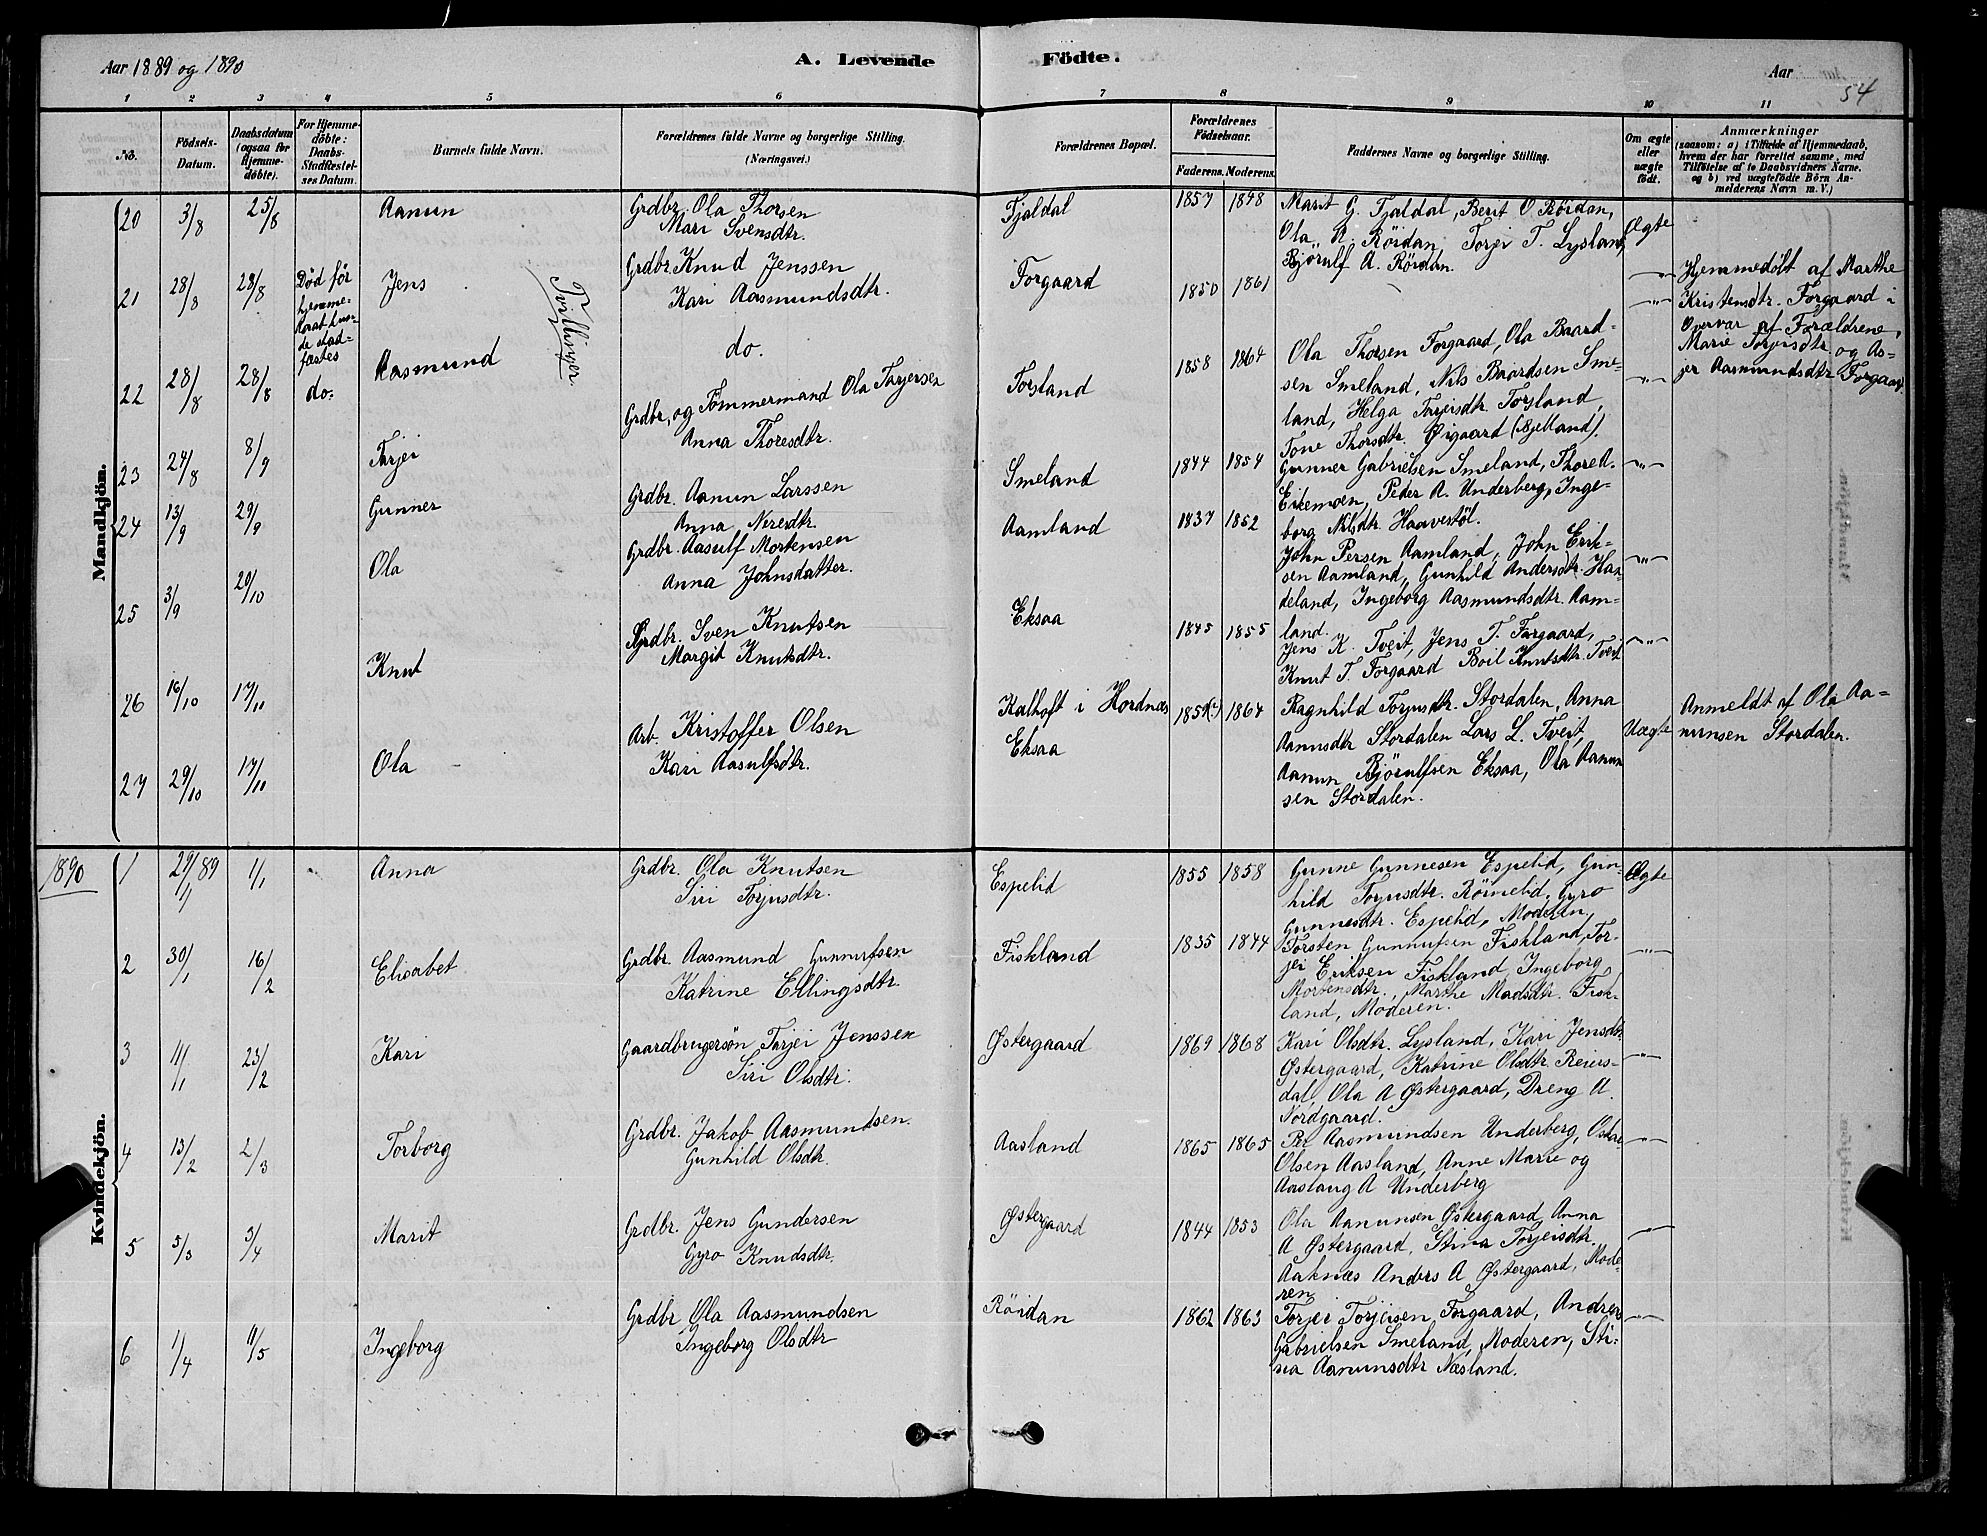 Aar 1889 og 1890
A. Levende Födte.
Aar
54
1 2 3 4 5 6 7 8 9 10 11
No.
Födsels-Datum.
Daabsdatum (ogsaa for Hjemme-döbte).
For Hjemme-döbte: Daabs-Stadfæstel-ses Datum.
Barnets fulde Navn.
Forældrenes fulde Navne og borgerlige Stilling. (Næringsvei.)
Forældrenes Bopæl.
Forældrenes Födselsaar.
Faderens. Moderens.
Faddernes Navne og borgerlige Stilling.
Om ægte eller uægte født.
Anmærkninger
(saasom: a) i Tilfælde af Hjemmedaab, hvem der har forrettet samme, med Tilføielse af to Daabsvidners Navne, og b) ved uægtefödte Börn An-melderens Navn m. V.)
Mandkjön.
20 3/8 25/8 Aanun
Grdbr. Ola Thorsen
Mari Svensdtr.
Tjaldal 1857 1848
Marit G. Tjaldal, Berit O. Röidan,
Ola A. Röidan, Torjei T. Lysland,
Björulf A. Rördan.
Ægte
21 28/8 28/8
Död för
hjemme-
daab kun-
de stad-
fæstes
Jens
Tvillinger
Grdbr. Knud Jenssen
Kari Aasmundsdtr.
Forgaard 1850 1861
Hjemmedöbt af Marthe
Kristensdtr. Forgaard i
Overvær af Forældrene,
Marie Torjeisdtr. og As-
jer Aasmundsdtr Forgaard.
22 28/8 28/8 do. Aasmund
do.
23 24/8 8/9 Tarjei
Grdbr. og Tømmermand Ola Tarjersen
Anna Thoresdtr.
Torsland 1858 1864
Ola Thorsen Forgaard, Ola Baard-
sen Smeland, Nils Baardsen Sme-
land, Helga Tarjeisdtr. Torsland,
Tone Thorsdtr. Øigaard (Kjetland).
24 13/9 29/9 Gunner
Grdbr. Aanun Larssen
Anna Neresdtr.
Smeland 1844 1854
Gunner Gabrielsen Smeland, Thore A.
Eikemoen, Peder A. Underberg, Inge-
borg Nilsdtr. Haavestöl.
25 3/9 20/10 Ola
Grdbr. Aasulf Mortensen
Anna Johnsdatter.
Aamland 1837 1852
John Persen Aamland, John Erik-
sen Aamland, Gunhild Andersdtr. Han-
deland, Ingeborg Aasmundsdtr. Aam-
land.
26 16/10 17/11 Knut
Grdbr. Sven Knutsen
Margit Knutsdtr.
Eksaa 1845 1855
Jens K. Tveit, Jens T. Forgaard,
Knut T. Forgaard Boil Knutsdtr. Tveit
27 29/10 17/11 Ola
Arb. Kristoffer Olsen
Kari Aasulfsdtr.
Kalhoft i Hordnæs
Eksaa
1864
Ragnhild Torjusdtr. Stordalen, Anna
Aanunsdtr Stordalen Lars L. Tveit,
Aanun Björulfsen Eksaa, Ola Aanun
sen Stordalen.
Uægte
Anmeldt af Ola Aa-
nunsen Stordalen.
1890
Kvindekjön.
1 29/1 89 1/1 Anna
Grdbr. Ola Knutsen
Siri Torjusdtr.
Espelid 1855 1858
Gunne Gunnesen Espelid, Gun-
hild Torjusdtr. Röinelid, Gyro
Gunnesdtr. Espelid, Moderen,
Ægte
2 30/1 16/2 Elisabet
Grdbr. Aasmund Gunnufsen
Katrine Ellingsdtr.
Fiskland 1835 1844
Torsten Gunnufsen Fiskland, Tor-
jei Eriksen Fiskland, Ingeborg
Mortensdtr., Marthe Madsdtr. Fisk-
land, Moderen.
3 11/1 23/2 Kari
Gaardbrugersön Tarjei Jenssen
Siri Olsdtr.
Østergaard 1869 1868
Kari Olsdtr. Lysland, Kari Jensdtr
Østergaard, Katrine Olsdtr. Reiers-
dal, Ola A Østergaard, Dreng A.
Nordgaard.
4 13/2 2/3 Torborg
Grdbr. Jakob Aasmundsen.
Gunhild Olsdtr.
Aasland 1865 1865
Per Aasmundsen Underberg, Oskar
Olsen Aasland, Anne Marie og
Aaslaug A Underberg
5 5/3 3/4 Marit
Grdbr. Jens Gundersen
Gyro Knudsdtr.
Østergaard 1844 1853
Ola Aanunsen Østergaard Anna
A Østergaard, Stina Torjeisdtr.
Aaknæs Anders A Østergaard, Mode-
ren
6 1/4 11/5 Ingeborg
Grdbr Ola Aasmundsen
Ingeborg Olsdtr
Röidan 1862 1863
Torjei Torjeisen Forgaard, Andreas
Gabrielsen Smeland, Moderen, Sti-
na Aanunsdtr Næsland.